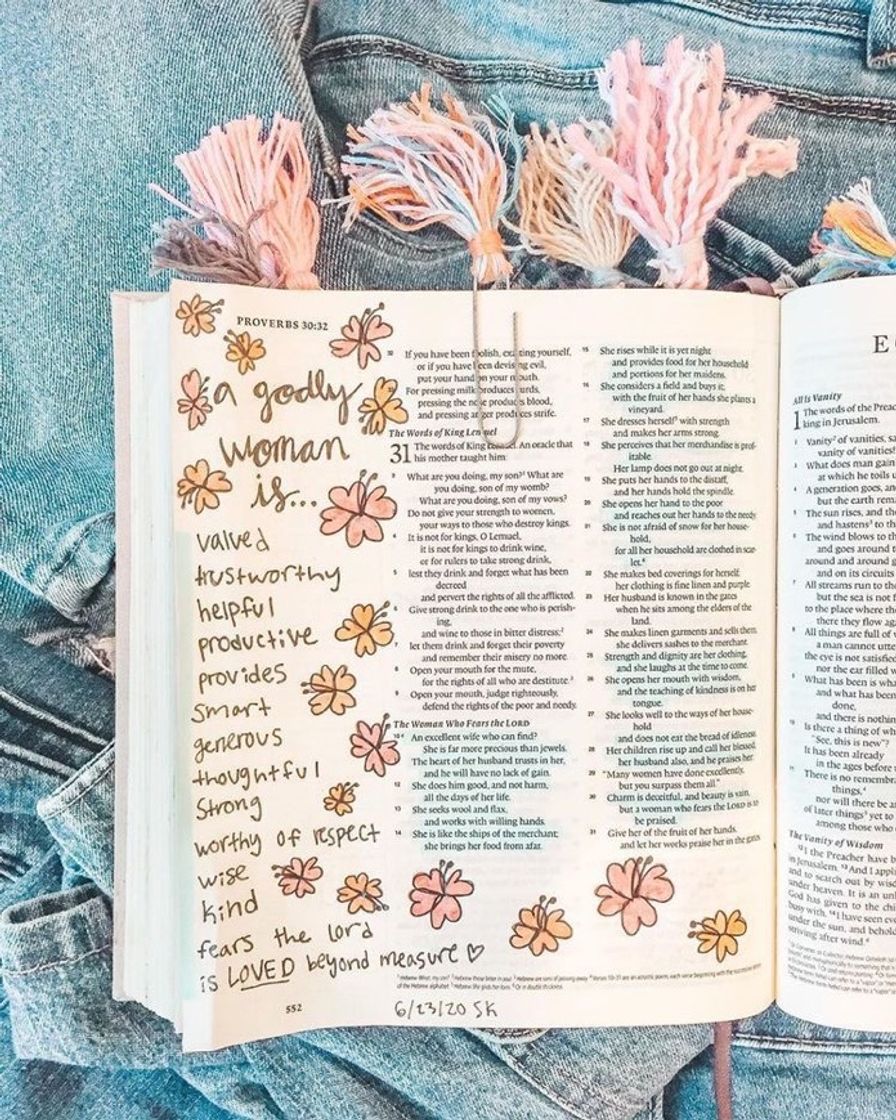 PROVERBS 30:32
a godly
woman
is...
valued
trustworthy
helpful
productive
provides
smart
generous
thoughtful
strong
worthy of respect
wise
kind
fears the lord
is LOVED beyond measure ♡
552
6/23/20 SK
32 If you have been foolish, exalting yourself,
or if you have been devising evil,
put your hand on your mouth.
33 For pressing milk produces curds,
pressing the nose produces blood,
and pressing anger produces strife.
The Words of King Lemuel
31 The words of King Lemuel. An oracle that
his mother taught him:
2 What are you doing, my son?¹ What are
you doing, son of my womb?
What are you doing, son of my vows?
3 Do not give your strength to women,
your ways to those who destroy kings.
4 It is not for kings, O Lemuel,
it is not for kings to drink wine,
or for rulers to take strong drink,
5 lest they drink and forget what has been
decreed
and pervert the rights of all the afflicted.
6 Give strong drink to the one who is perish-
ing,
and wine to those in bitter distress;²
7 let them drink and forget their poverty
and remember their misery no more.
8 Open your mouth for the mute,
for the rights of all who are destitute.³
9 Open your mouth, judge righteously,
defend the rights of the poor and needy.
The Woman Who Fears the LORD
10⁴ An excellent wife who can find?
She is far more precious than jewels.
11 The heart of her husband trusts in her,
and he will have no lack of gain.
12 She does him good, and not harm,
all the days of her life.
13 She seeks wool and flax,
and works with willing hands.
14 She is like the ships of the merchant;
she brings her food from afar.
15 She rises while it is yet night
and provides food for her household
and portions for her maidens.
16 She considers a field and buys it;
with the fruit of her hands she plants a
vineyard.
17 She dresses herself⁵ with strength
and makes her arms strong.
18 She perceives that her merchandise is prof-
itable.
Her lamp does not go out at night.
19 She puts her hands to the distaff,
and her hands hold the spindle.
20 She opens her hand to the poor
and reaches out her hands to the needy.
21 She is not afraid of snow for her house-
hold,
for all her household are clothed in scar-
let.⁶
22 She makes bed coverings for herself;
her clothing is fine linen and purple.
23 Her husband is known in the gates
when he sits among the elders of the
land.
24 She makes linen garments and sells them;
she delivers sashes to the merchant.
25 Strength and dignity are her clothing,
and she laughs at the time to come.
26 She opens her mouth with wisdom,
and the teaching of kindness is on her
tongue.
27 She looks well to the ways of her house-
hold
and does not eat the bread of idleness.
28 Her children rise up and call her blessed;
her husband also, and he praises her:
29 "Many women have done excellently,
but you surpass them all."
30 Charm is deceitful, and beauty is vain,
but a woman who fears the LORD is to
be praised.
31 Give her of the fruit of her hands,
and let her works praise her in the gates.
E
All Is Vanity
1 The words of the Prea
king in Jerusalem.
2 Vanity² of vanities, sa
vanity of vanities!
3 What does man gain
at which he toils u
4 A generation goes, an
but the earth rem
5 The sun rises, and the
and hastens³ to th
6 The wind blows to th
and goes around
around and around g
and on its circuits
7 All streams run to the
but the sea is not f
to the place where the
there they flow ag
8 All things are full of w
a man cannot utte
the eye is not satisfied
nor the ear filled w
9 What has been is wha
and what has been
done,
and there is nothin
10 Is there a thing of wh
"See, this is new"?
It has been already
in the ages before
11 There is no rememb
things,⁴
nor will there be a
of later things⁵ yet to
among those who
The Vanity of Wisdom
12 I the Preacher have b
in Jerusalem. 13 And I appl
and to search out by wisd
under heaven. It is an unh
God has given to the chi
busy with. 14 I have seen eve
under the sun, and behold
striving after wind.⁶